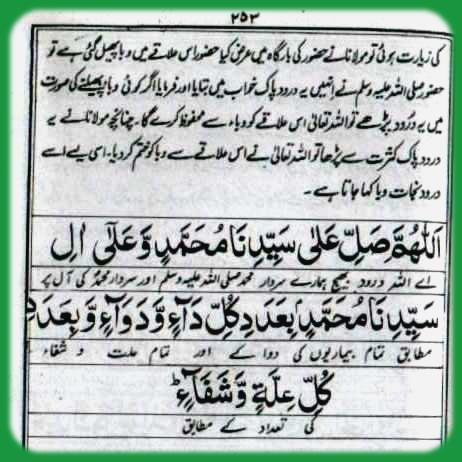 ۲۵۳
کی زیارت ہوئی تو مولانا نے حضور کی بارگاہ میں عرض کیا حضور اس علاقے میں وبا پھیل گئی ہے تو
حضور صلی اللہ علیہ وسلم نے انہیں یہ درود پاک خواب میں بتایا اور فرمایا اگر کوئی وبا پھیلنے کی صورت
میں یہ درُود پڑھے تو اللہ تعالیٰ اس علاقے کو وباء سے محفوظ کرے گا۔ چنانچہ مولانا نے یہ
درود پاک کثرت سے پڑھا تو اللہ تعالیٰ نے اس علاقے سے وبا کو ختم کر دیا۔ اسی لیے اسے
درود نجات وبا کہا جاتا ہے۔
اَللّٰهُمَّ صَلِّ عَلٰى سَيِّدِنَا مُحَمَّدٍ وَّعَلٰٓى اٰلِ
اے اللہ درود بھیج ہمارے سردار محمد صلی اللہ علیہ وسلم اور سردار محمدؐ کی آل پر
سَيِّدِنَا مُحَمَّدٍ بِعَدَدِ كُلِّ دَآءٍ وَّدَوَآءٍ وَّبِعَدَدِ
مطابق تمام بیماریوں کی دوا کے اور تمام علت و شفاء
كُلِّ عِلَّةٍ وَّشَفَآءٍ
کی تعداد کے مطابق